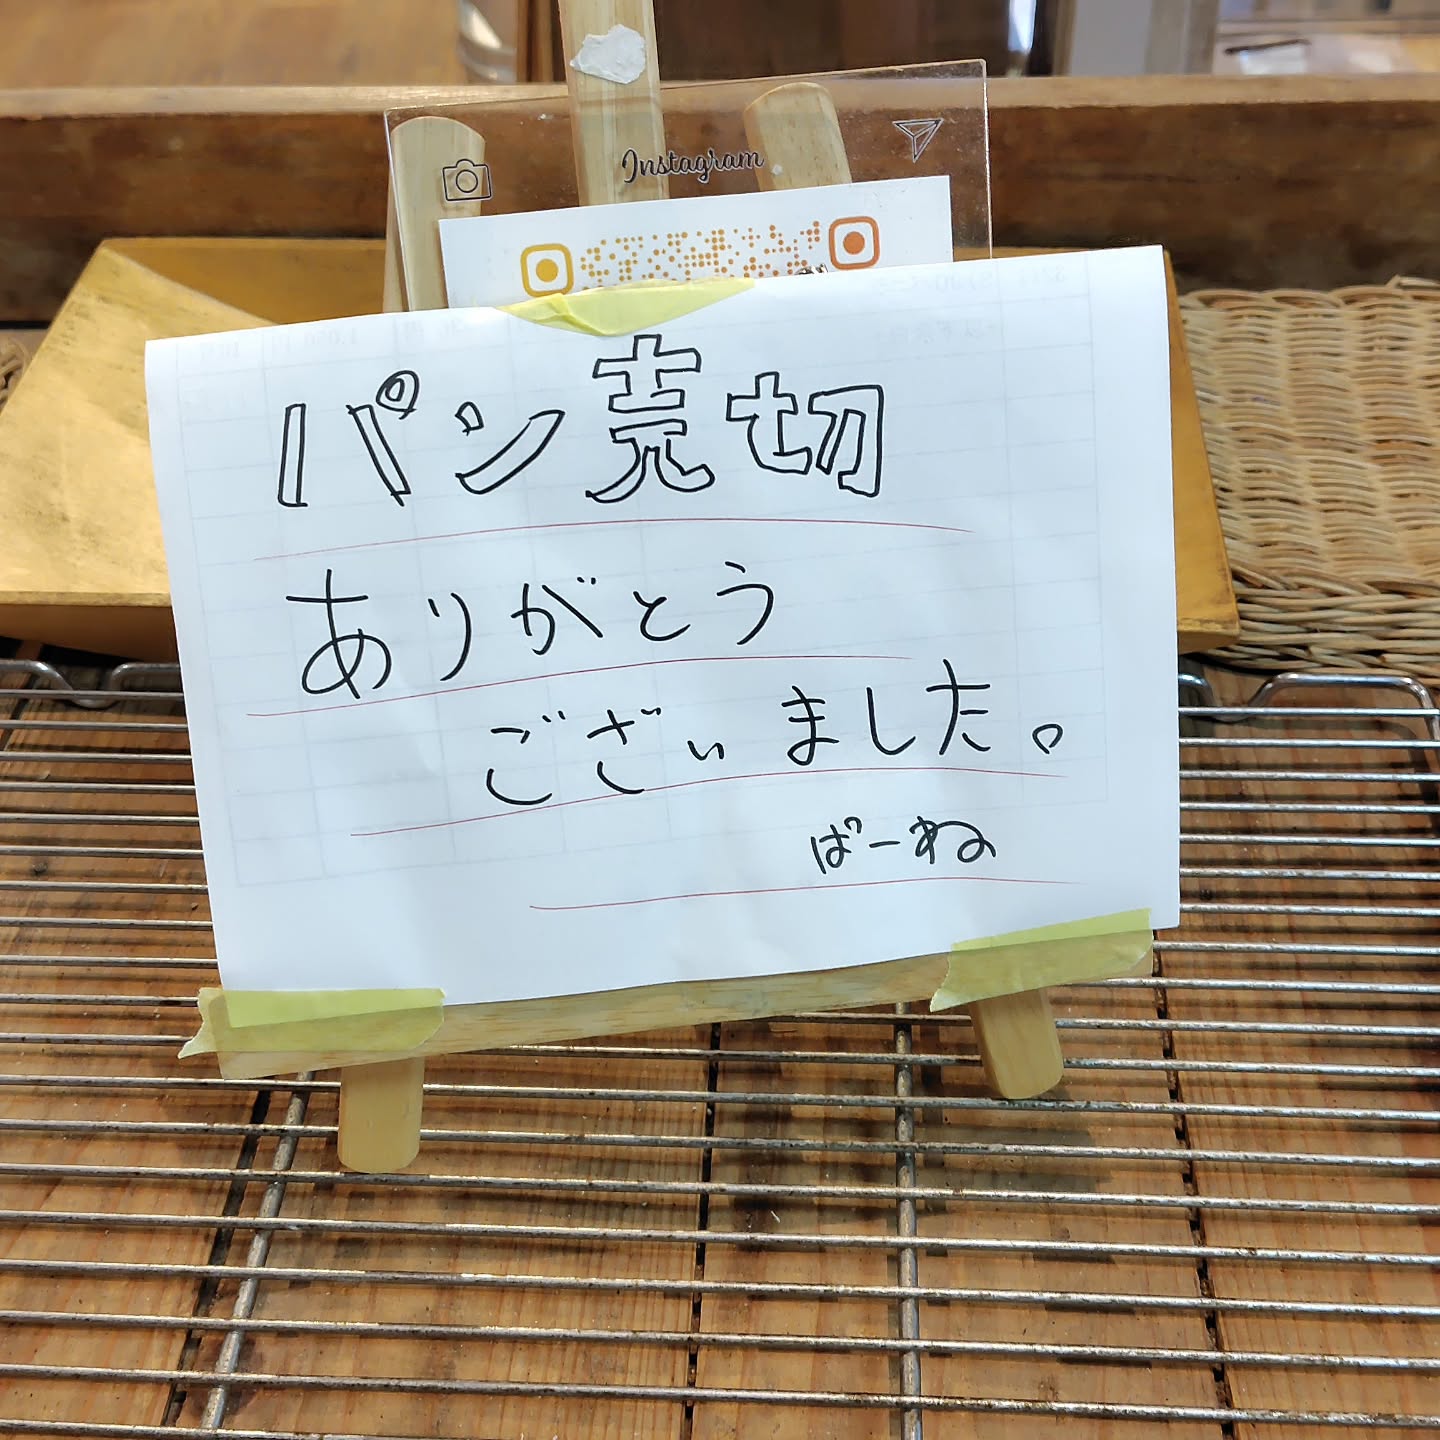 Instagram
パン売切
ありがとう
ございました。
ばーね